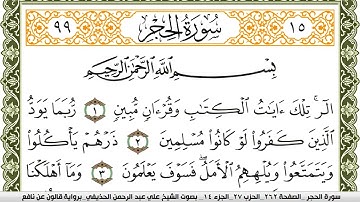 ٩٩ سُورَةُ الحِجْرِ ١٥
بِسْمِ اللَّهِ الرَّحْمَٰنِ الرَّحِيمِ
أَلَٓرۖ تِلْكَ ءَايَٰتُ الْكِتَٰبِ وَقُرْءَانٖ مُّبِينٖ ١ رُّبَمَا يَوَدُّ
الَّذِينَ كَفَرُواْ لَوْ كَانُواْ مُسْلِمِينَ ٢ ذَرْهُمْ يَأْكُلُواْ
وَيَتَمَتَّعُواْ وَيُلْهِهِمُ الْأَمَلُ فَسَوْفَ يَعْلَمُونَ ٣ وَمَا أَهْلَكْنَا
سورة الحجر _الصفحة ٢٦٢_الحزب ٢٧_الجزء ١٤_ بصوت الشيخ علي عبد الرحمن الحذيفي_برواية قالون عن نافع